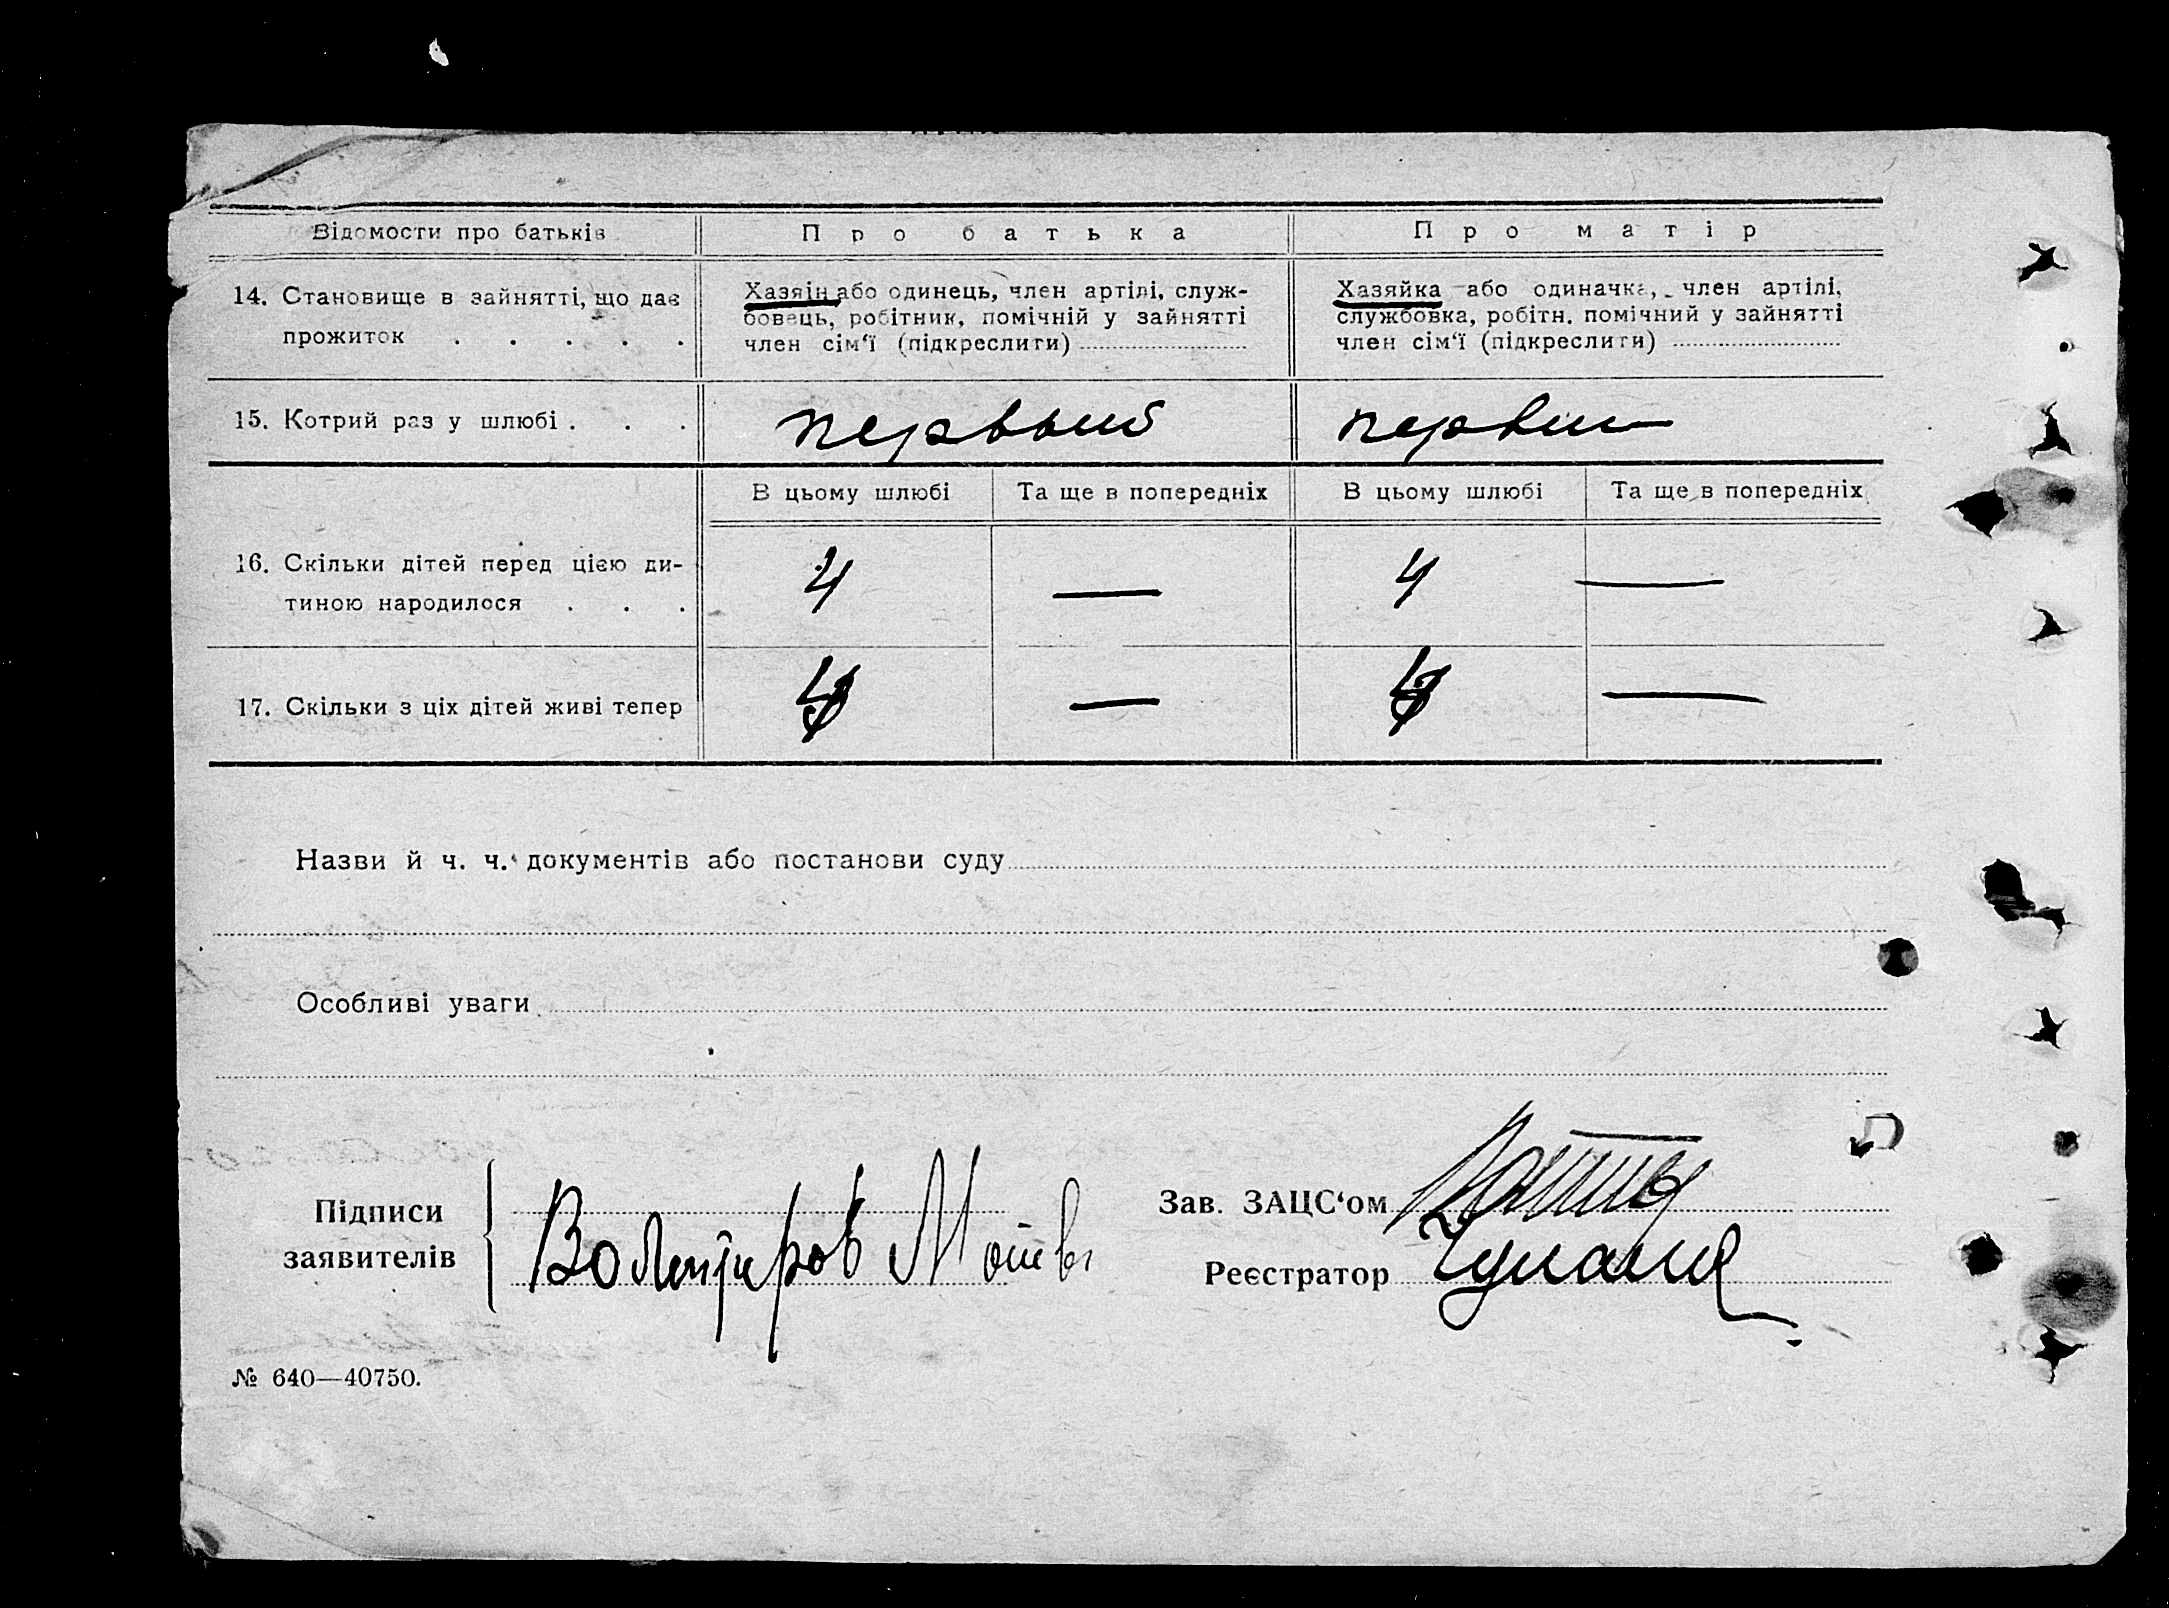 Відомости про батьків Про батька Про матір
14. Становище в зайнятті, що дає прожиток . . . . .
Хазяїн або одинець, член артілі, служ-
бовець, робітник, помічній у зайнятті
член сім‘ї (підкреслити)
Хазяйка або одиначка, член артілі,
службовка, робітн. помічний у зайнятті
член сім‘ї (підкреслити)
15. Котрий раз у шлюбі . . . первый первый
В цьому шлюбі Та ще в попередніх В цьому шлюбі Та ще в попередніх
16. Скільки дітей перед цією ди-
тиною народилося . . . 4 — 4 —
17. Скільки з ціх дітей живі тепер — —
Назви й ч. ч. документів або постанови суду
Особливі уваги
Підписи
заявителів
Волентіров
Зав. ЗАЦС‘ом
Реєстратор
№ 640—40750.